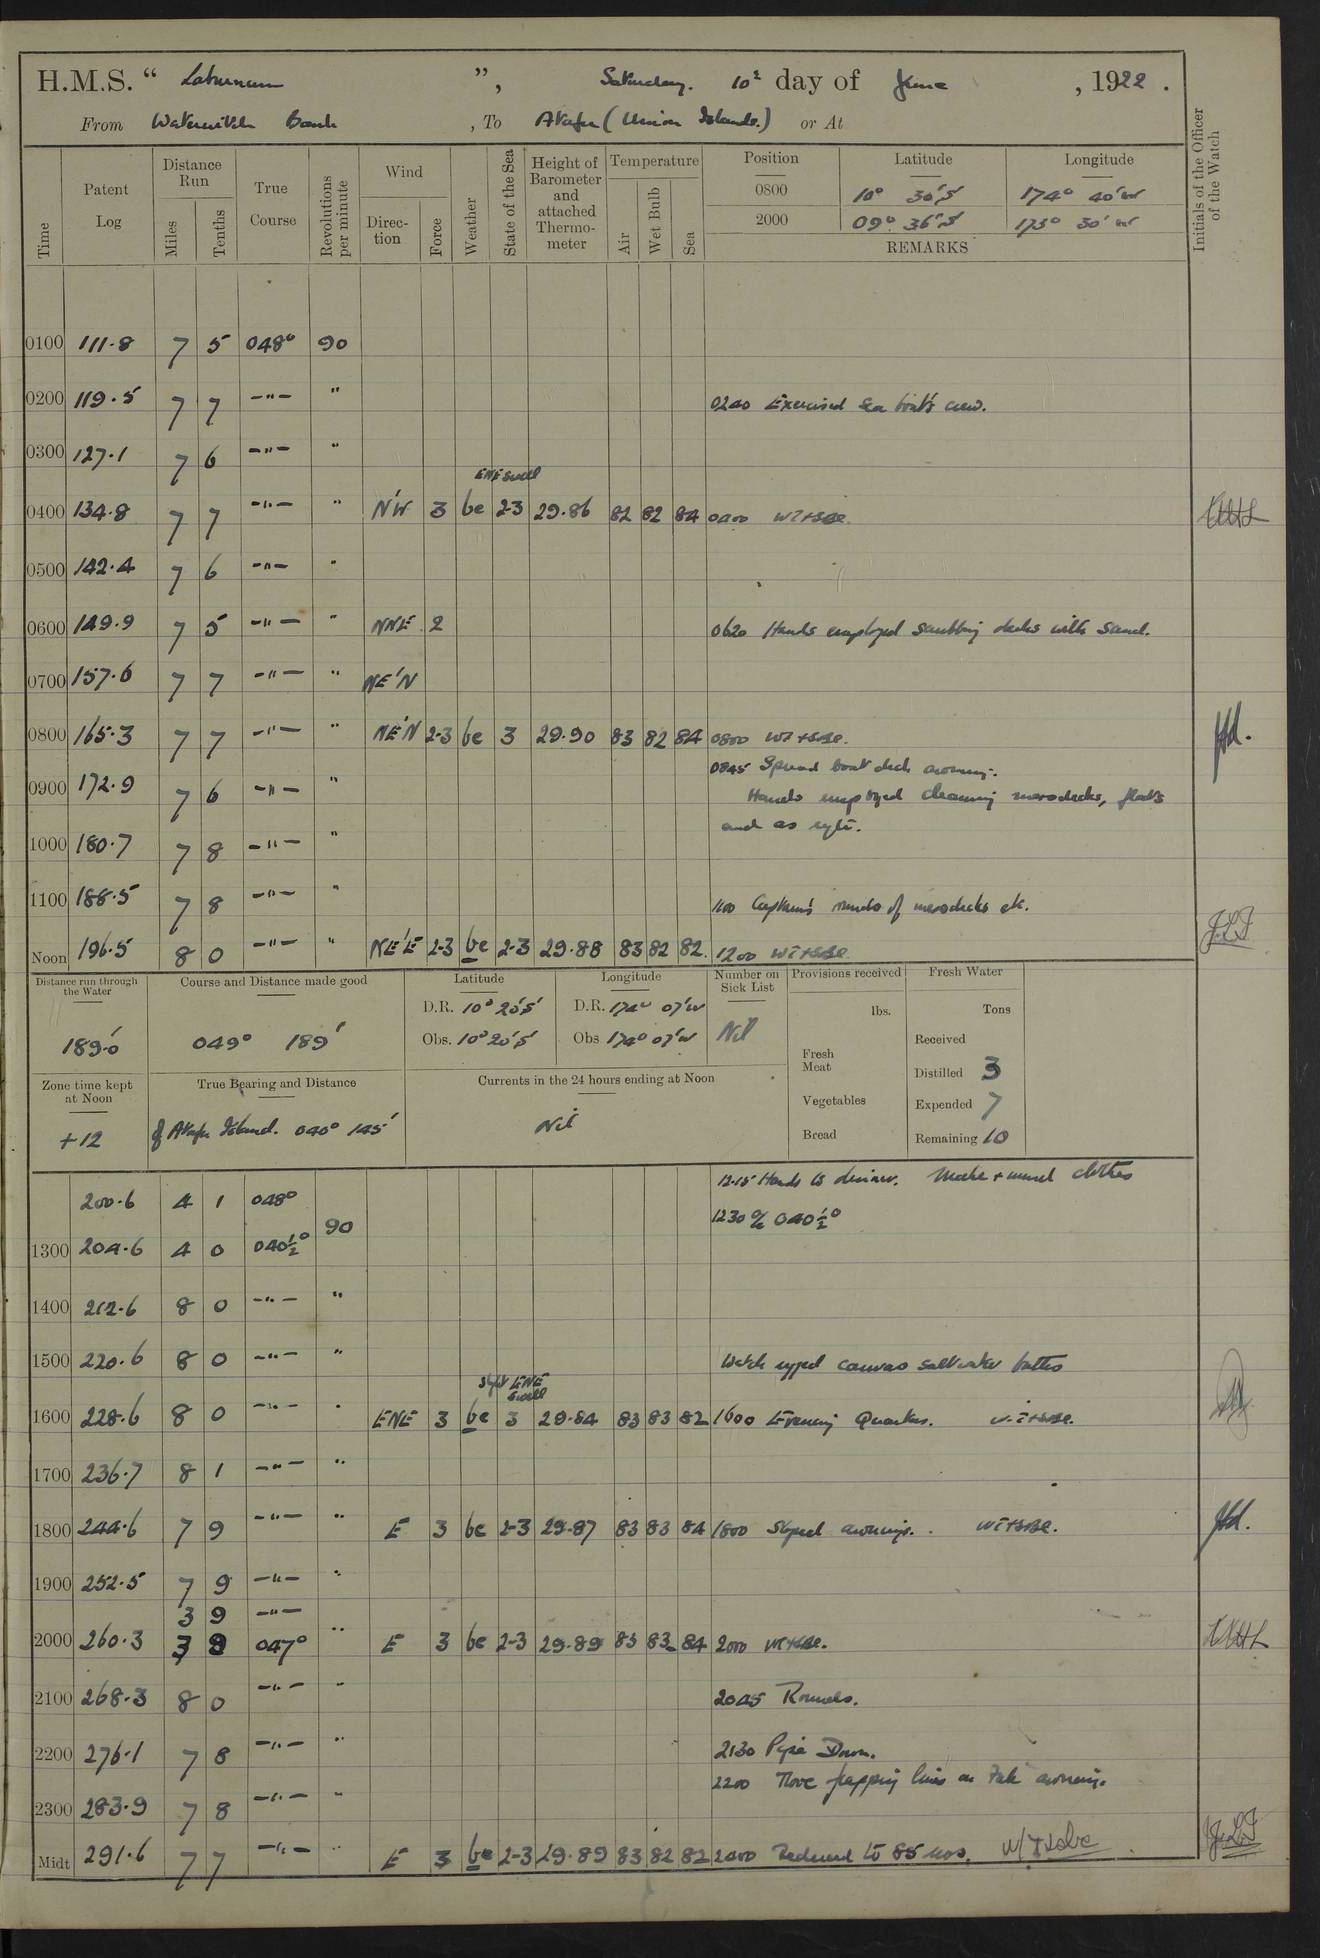 H.M.S. “ Laburnum ”, Saturday. 10th day of June , 1922 .
From Waterwitch Bank , To Atafu (Union Islands.) or At
Initials of the Officer of the Watch
Time Patent Log Distance Run Miles Tenths True Course Revolutions per minute Wind Direction Force Weather State of the Sea Height of Barometer and attached Thermometer Temperature Air Wet Bulb Sea Position Latitude Longitude
0800 10° 30'S 174° 40'W
2000 09° 36'S 173° 30'W
REMARKS
0100 111.8 7 5 048° 90
0200 119.5 7 7 -"- " 0240 Exercised Sea boat's crew.
0300 127.1 7 6 -"- "
ENE swell
0400 134.8 7 7 -"- " N'W 3 bc 2-3 29.86 82 82 84 0400 WT+SBE.
0500 142.4 7 6 -"- "
0600 149.9 7 5 -"- " NNE 2 0620 Hands employed scrubbing decks with sand.
0700 157.6 7 7 -"- " NE'N
0800 165.3 7 7 -"- " NE'N 2-3 bc 3 29.90 83 82 84 0800 WT+SBE.
0845 Spread boat deck awning.
0900 172.9 7 6 -"- " Hands employed cleaning messdecks, flats
and as reqte.
1000 180.7 7 8 -"- "
1100 188.5 7 8 -"- " 1100 Captain's rounds of messdecks etc.
Noon 196.5 8 0 -"- " NE'E 2-3 bc 2-3 29.88 83 82 82. 1200 WT+SBE. J.L.F
Distance run through the Water Course and Distance made good Latitude Longitude Number on Sick List Provisions received Fresh Water
lbs. Tons
D.R. 10° 20'S D.R. 174° 07'W
189.0' 049° 189' Obs. 10° 20'S Obs 174° 07'W Nil Received
Fresh Meat
Zone time kept at Noon True Bearing and Distance Currents in the 24 hours ending at Noon Distilled 3
Vegetables Expended 7
+12 of Atafu Island. 040° 145' Nil Bread Remaining 10
200.6 4 1 048° 1215 Hands to dinner. Make + mend clothes
90 1230 a/c 040½°
1300 204.6 4 0 040½°
1400 212.6 8 0 -"- "
1500 220.6 8 0 -"- " Watch rigged canvas saltwater baths
ENE swell
1600 228.6 8 0 -"- " ENE 3 bc 3 29.84 83 83 82 1600 Evening Quarters. WT+SBE.
1700 236.7 8 1 -"- "
1800 244.6 7 9 -"- " E 3 bc 2-3 29.87 83 83 84 1800 Sloped awnings. WT+SBE.
1900 252.5 7 9 -"- "
3 9 -"-
2000 260.3 3 9 047° " E 3 bc 2-3 29.89 83 83 84 2000 WT+SBE.
2100 268.3 8 0 -"- " 2045 Rounds.
2200 276.1 7 8 -"- " 2130 Pipe Down.
2200 Rove frapping lines on awning.
2300 283.9 7 8 -"- "
Midt 291.6 7 7 -"- " E 3 bc 2-3 29.89 83 82 82 2400 Reduced to 85 revs. W/T+sbe J.L.F